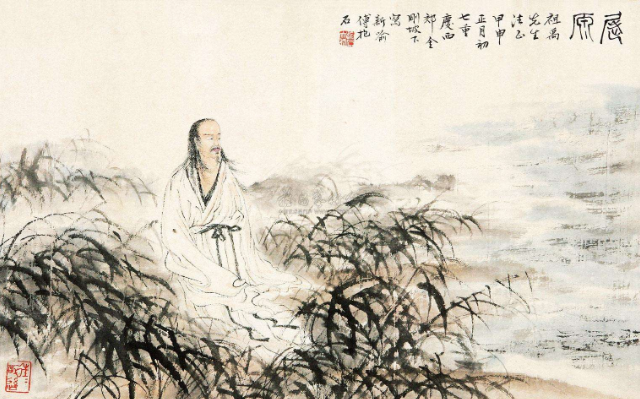 屈原
祖禹
先生
法正
甲申
正月初
七重
慶西
郊金
剛坡下
寫
新喻
傅抱
石